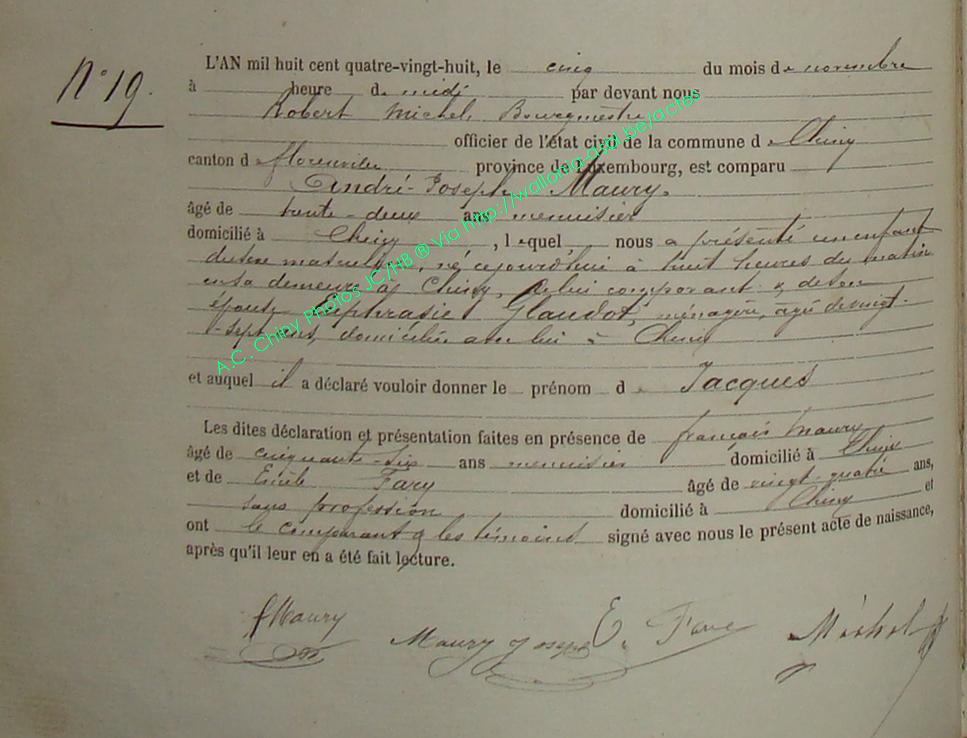 N° 19.
L'AN mil huit cent quatre-vingt-huit, le cinq du mois de novembre
à heure de midi par devant nous
Robert Michel, Bourgmestre
officier de l'état civil de la commune de Chiny
canton de florenville province de Luxembourg, est comparu
André-Joseph Maury.
âgé de trente-deux ans menuisier
domicilié à Chiny, lequel nous a présenté un enfant
du sexe masculin, né cejourd'hui à huit heures du matin
en sa demeure à Chiny, de lui comparant & de son
épouse Euphrasie Glaudot, ménagère, agée de vingt-
-sept ans, domiciliée avec lui à Chiny
et auquel il a déclaré vouloir donner le prénom de Jacques
Les dites déclaration et présentation faites en présence de françois Maury
âgé de cinquante-six ans menuisier domicilié à Chiny
et de Emile Fary âgé de vingt-quatre ans,
sans profession domicilié à Chiny et
ont le comparant & les témoins signé avec nous le présent acte de naissance,
après qu'il leur en a été fait lecture.
fMaury
Maury Joseph
E.
Michel
A.C. Chiny Photos JC/HB ® Via http://wallonia.asbl.be/actes